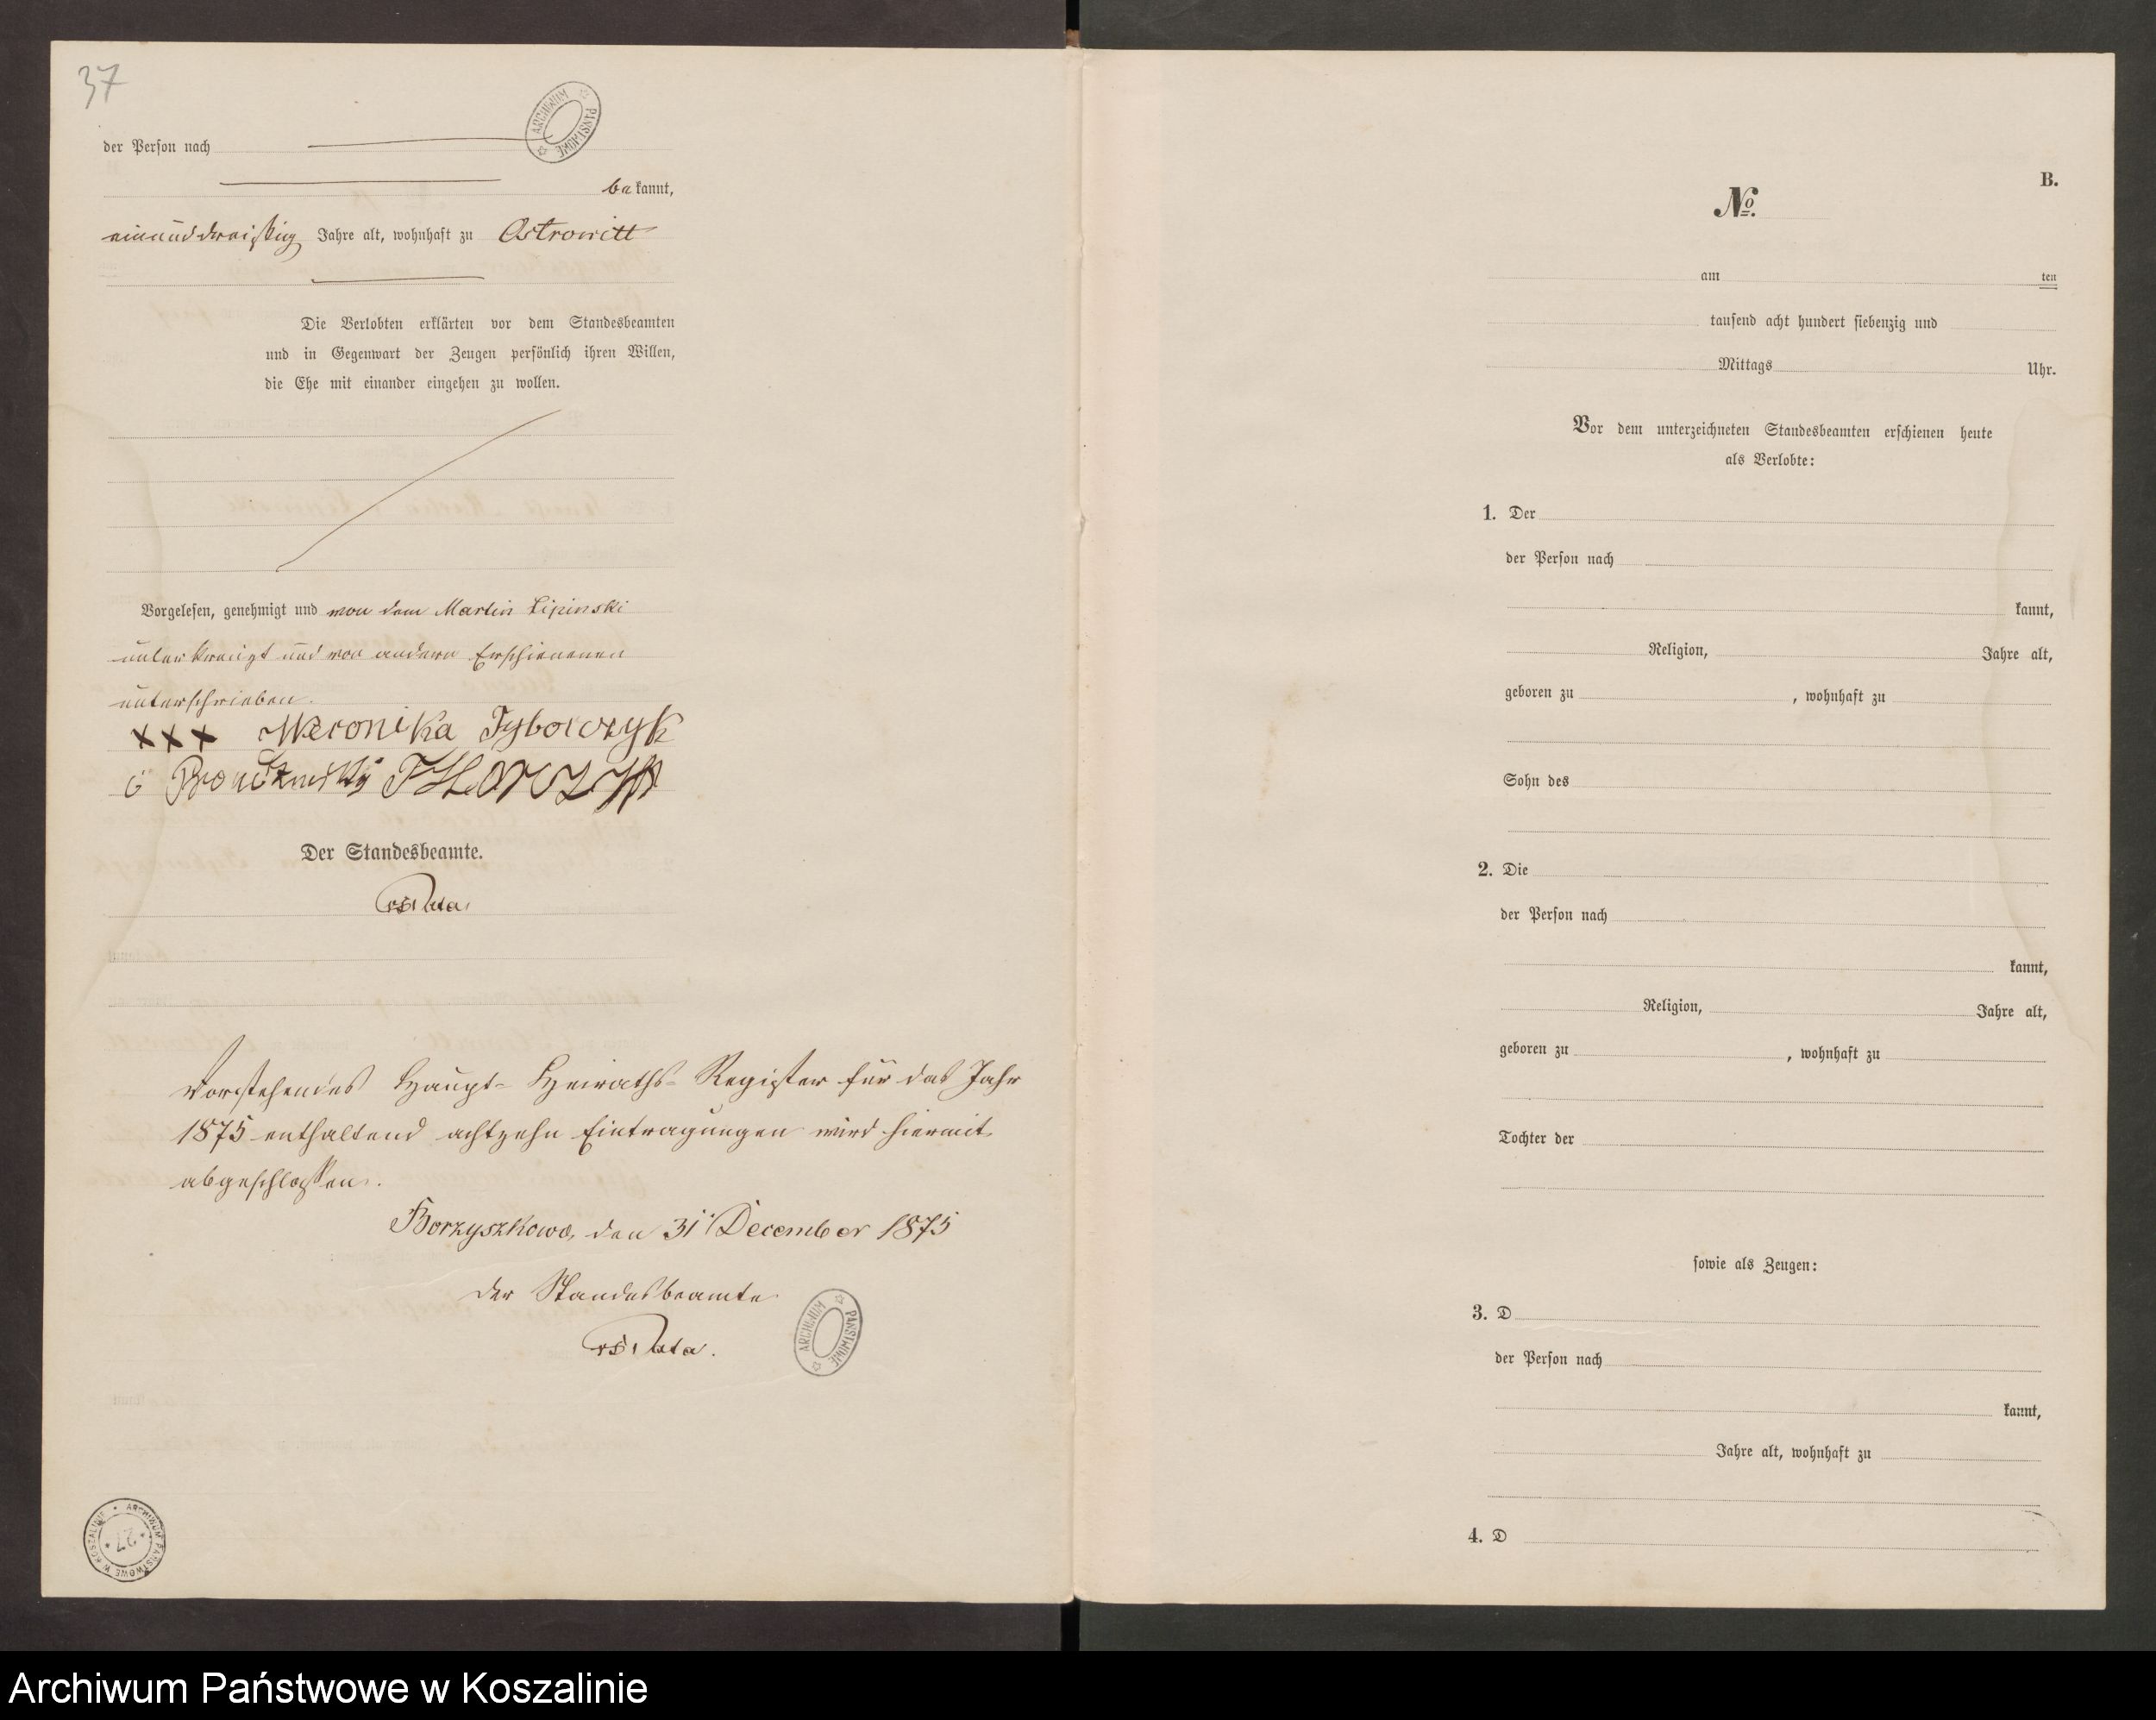 37
ARCHIWUM PAŃSTWOWE
der Person nach
bekannt,
einunddreißig Jahre alt, wohnhaft zu Ostrowitt
Die Verlobten erklärten vor dem Standesbeamten
und in Gegenwart der Zeugen persönlich ihren Willen,
die Ehe mit einander eingehen zu wollen.
Vorgelesen, genehmigt und von dem Martin Lipinski
unterkreuzt und von andern Erschienenen
unterschrieben.
xxx Weronika Tyborczyk
Der Standesbeamte.
Vorstehendes Haupt-Heiraths-Register für das Jahr
1875 enthaltend achtzehn Eintragungen wird hiermit
abgeschlossen.
Borzyszkowo, den 31 December 1875
Der Standesbeamte
ARCHIWUM PAŃSTWOWE
ARCHIWUM PAŃSTWOWE W KOSZALINIE
27
B.
No.
am ten
tausend acht hundert siebenzig und
Mittags Uhr.
Vor dem unterzeichneten Standesbeamten erschienen heute
als Verlobte:
1. Der
der Person nach
kannt,
Religion, Jahre alt,
geboren zu , wohnhaft zu
Sohn des
2. Die
der Person nach
kannt,
Religion, Jahre alt,
geboren zu , wohnhaft zu
Tochter der
sowie als Zeugen:
3. D
der Person nach
kannt,
Jahre alt, wohnhaft zu
4. D
Archiwum Państwowe w Koszalinie